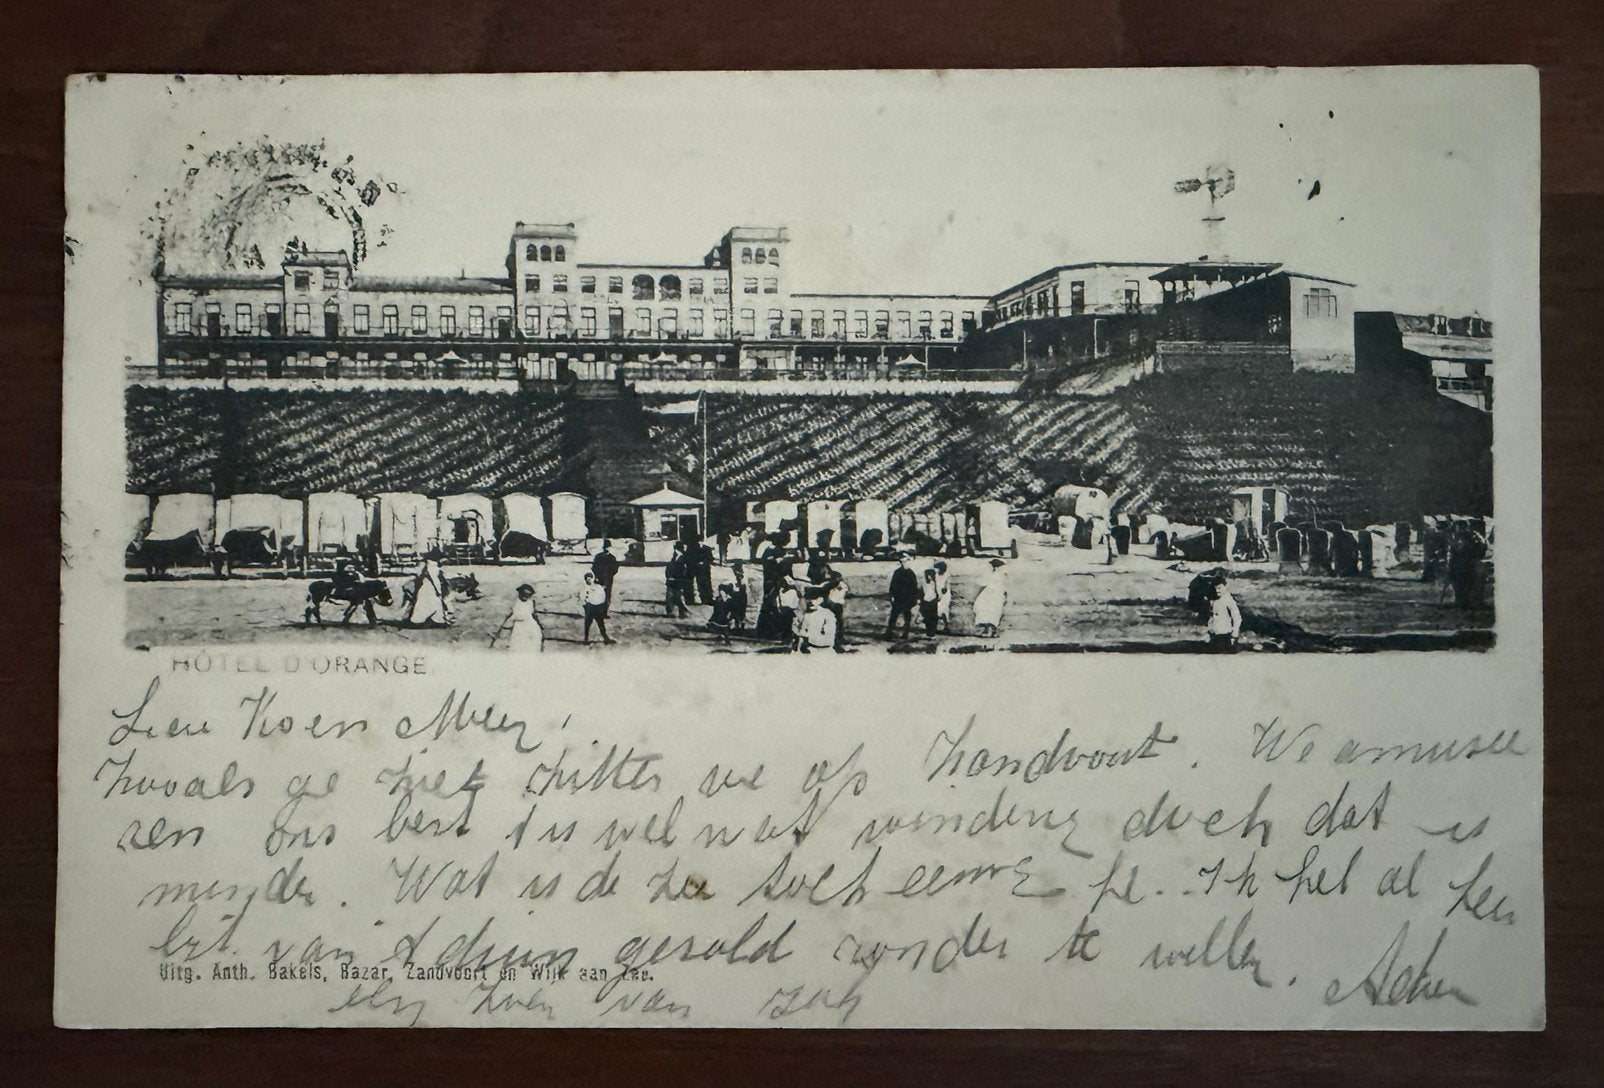 HÔTEL D'ORANGE.
Lieve Koen Meer,
Zooals ge ziet zitten we op Zandvoort. We amusee
ren ons best t is wel wat winderig doch dat is
minder. Wat is de zee toch eenig hè. Ik heb al
van t duin gerold zonder te willen.
Uitg. Anth. Bakels, Bazar, Zandvoort en Wijk aan Zee.
zoen van